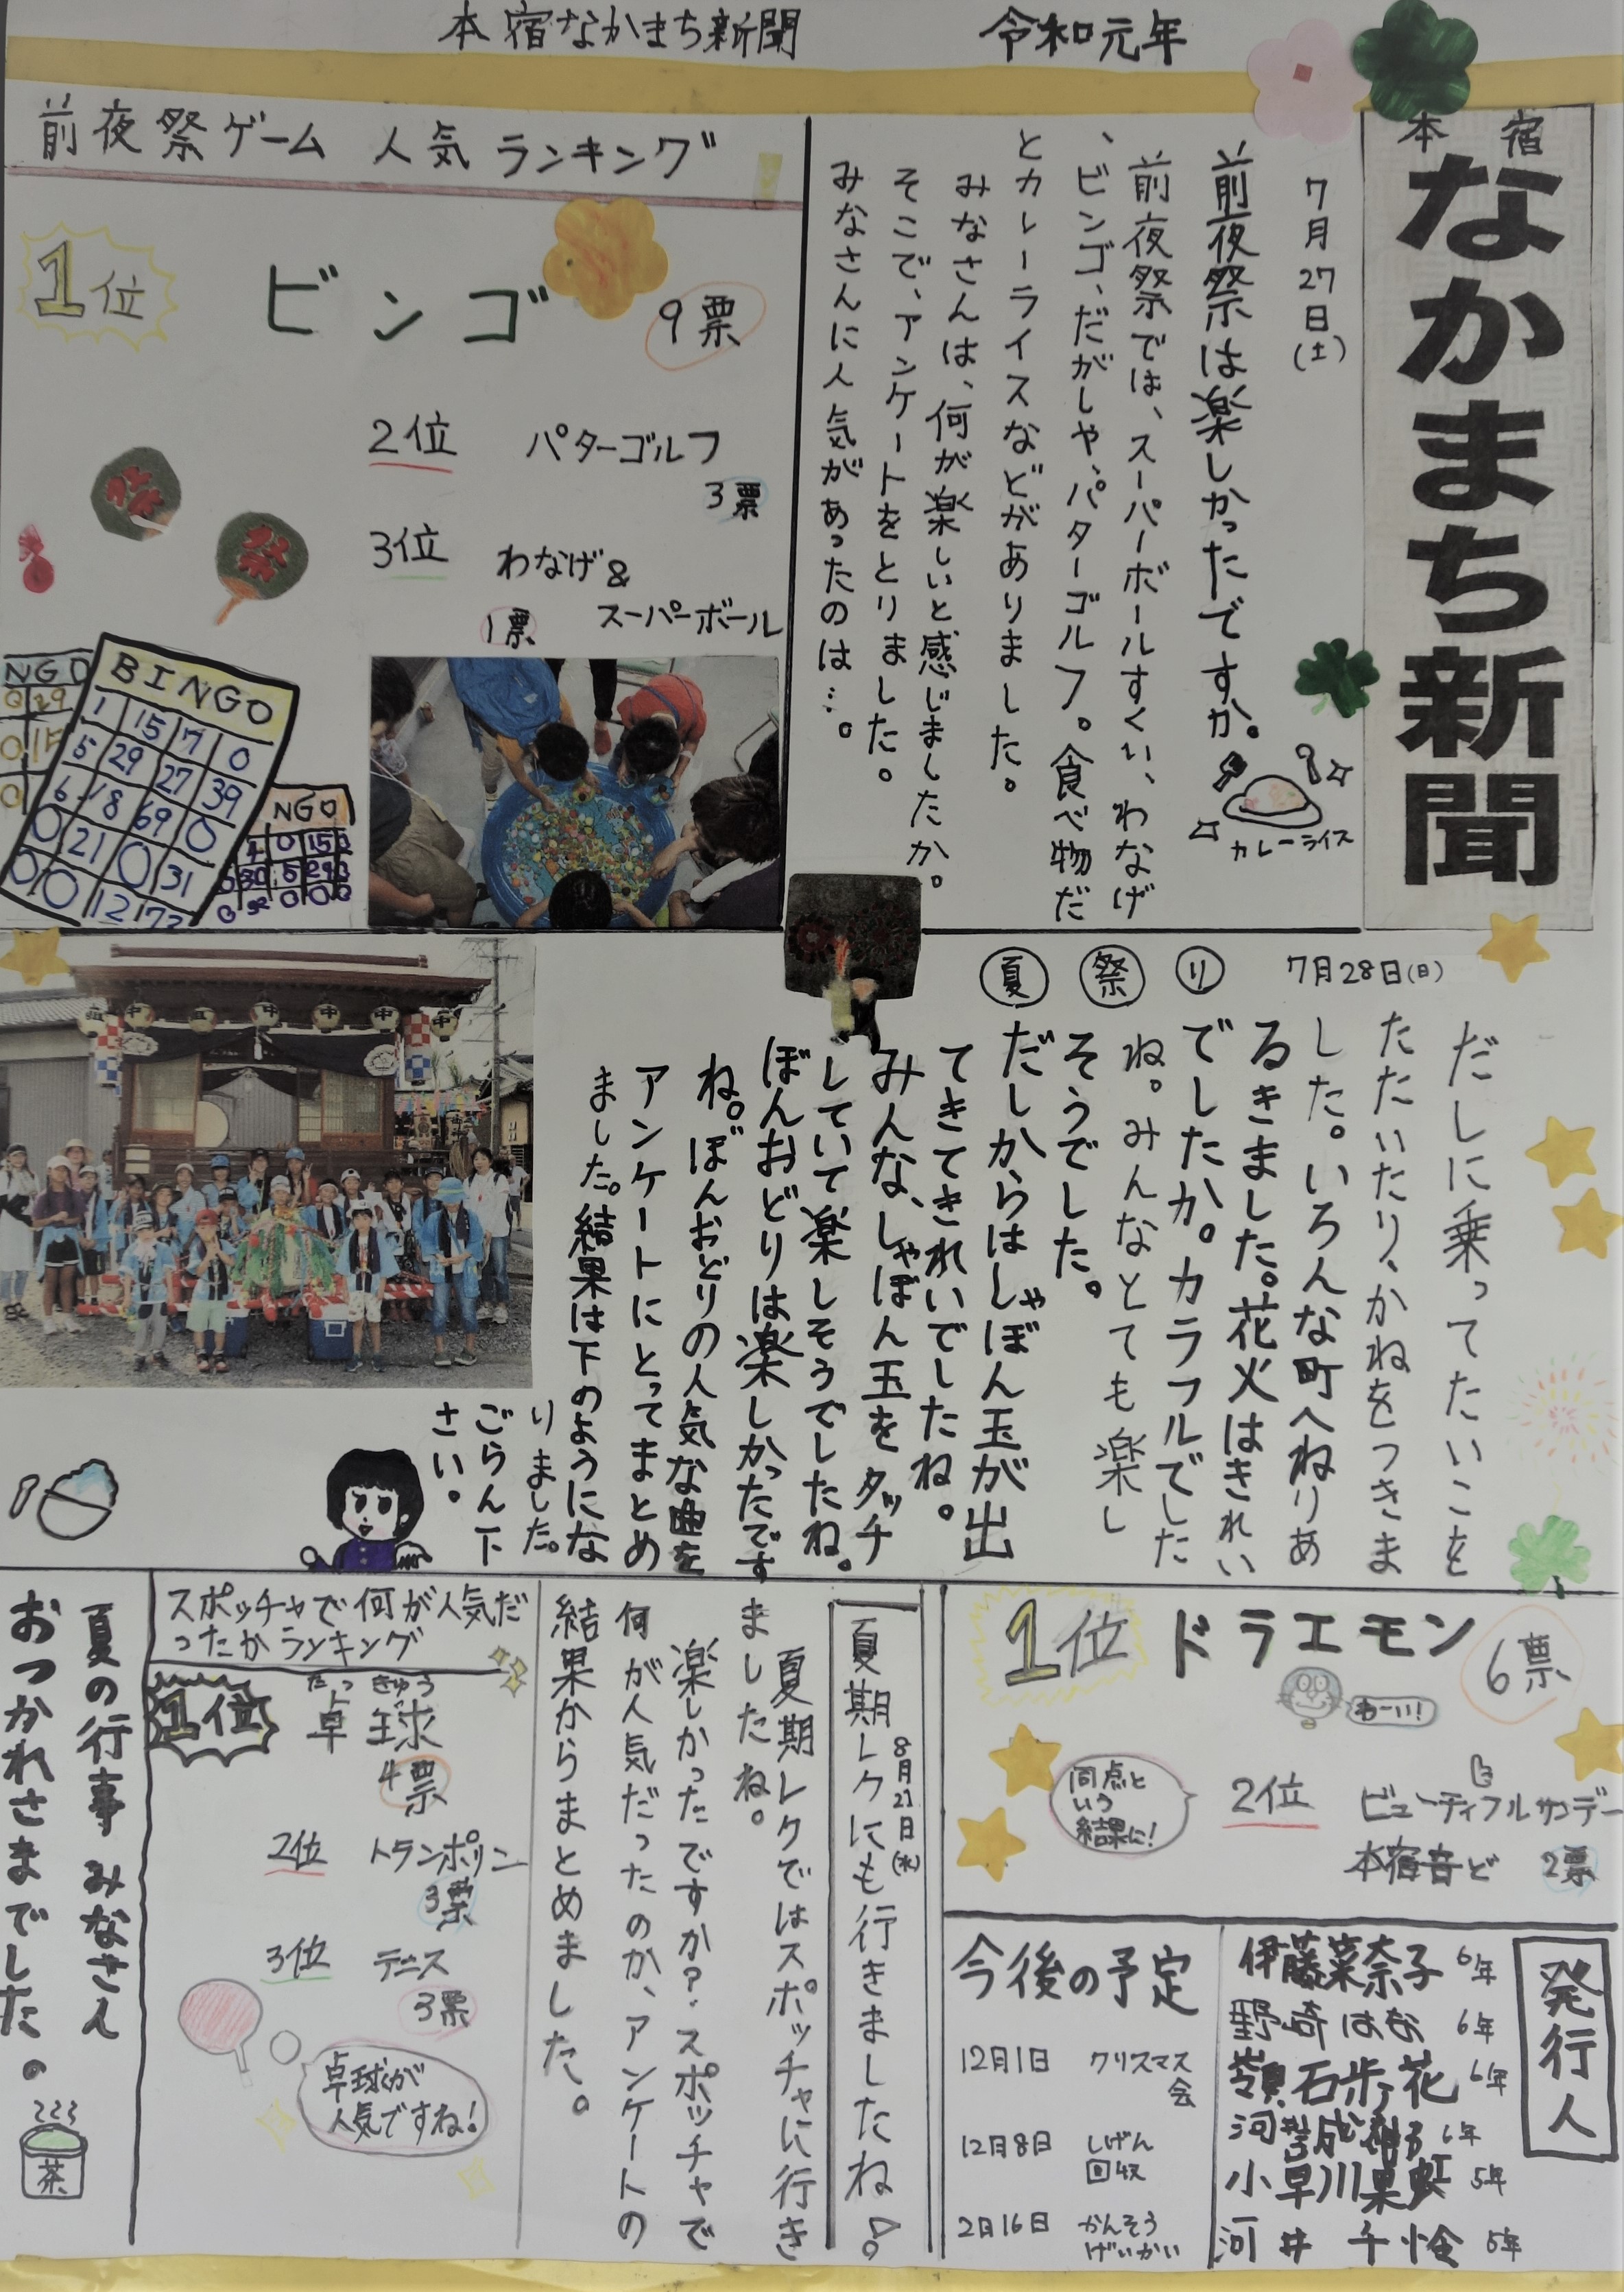 本宿なかまち新聞 令和元年
本宿
なかまち新聞
7月27日(土)
前夜祭は楽しかったですか。
前夜祭では、スーパーボールすくい、わなげ
、ビンゴ、だがしや、パターゴルフ。食べ物だ
とカレーライスなどがありました。
みなさんは、何が楽しいと感じましたか。
そこで、アンケートをとりました。
みなさんに人気があったのは…。
カレーライス
前夜祭ゲーム 人気ランキング
1位 ビンゴ 9票
2位 パターゴルフ
3票
3位 わなげ&
スーパーボール
1票
祭
祭
BINGO
1 15 7 0
5 29 27 39
6 18 69 0
0 21 0 31
0 0 12 73
NGO
NGO
7月28日(日)
夏祭り
だしに乗ってたいこを
たたいたり、かねをつきま
した。いろんな町へねりあ
るきました。花火はきれい
でしたか。カラフルでした
ね。みんなとても楽し
そうでした。
だしからはしゃぼん玉が出
てきてきれいでしたね。
みんな、しゃぼん玉をタッチ
していて楽しそうでしたね。
ぼんおどりは楽しかったです
ね。ぼんおどりの人気な曲を
アンケートにとってまとめ
ました。結果は下のようにな
りました。
ごらん下
さい。
1位 ドラエモン 6票
わーい!
同点と
いう
結果に!
2位 ビューティフルサンデー
本宿音ど 2票
発行人
伊藤菜奈子 6年
野崎はな 6年
嶺石歩花 6年
小早川果虹 5年
河井千怜 5年
今後の予定
12月1日 クリスマス
会
12月8日 しげん
回収
2月16日 かんそう
げいかい
夏期レクにも行きましたね♪。
8月21日(水)
夏期レクではスポッチャに行き
ましたね。
楽しかったですか?スポッチャで
何が人気だったのか、アンケートの
結果からまとめました。
スポッチャで何が人気だ
ったかランキング
1位 卓球
たっきゅう
4票
2位 トランポリン
3票
3位 テニス
3票
卓球が
人気ですね!
夏の行事 みなさん
おつかれさまでした。
茶